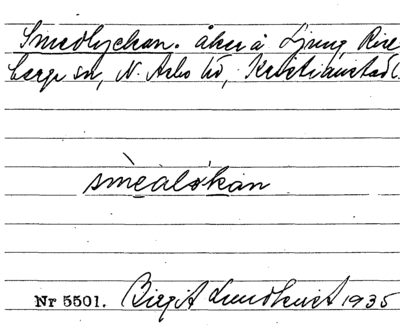 Smedlyckan. åker å Ljung, Rise
berga sn, N. Åsbo hd, Kristianstad l.
smèalø̀kan
Nr 5501. Birgit Lundkvist 1935